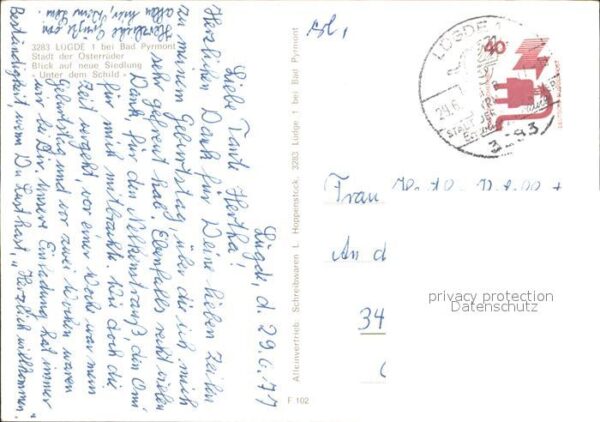 3283 LÜGDE 1 bei Bad Pyrmont
Stadt der Osterräder
Blick auf neue Siedlung
- Unter dem Schild -
Lügde, d. 29.6.77
Liebe Tante Hertha!
Herzlichen Dank für Deine lieben Zeilen
zu meinem Geburtstag, über die ich mich
sehr gefreut hab. Ebenfalls recht vielen
Dank für den Nelkenstrauß, den Omi
für mich mitbrachte. Wie doch die
Zeit vergeht, vor einer Woche war mein
Geburtstag und vor zwei Wochen waren
wir bei Dir. Unsere Einladung hat immer
Beständigkeit, wenn Du Lust hast, "Herzlich willkommen."
Herzliche Grüße von
allen hier, Deine
Alleinvertrieb: Schreibwaren L. Hoppenstock, 3283 Lügde 1 bei Bad Pyrmont
F 102
LÜGDE 1
29.6.
STADT DER
3283
40
Frau
An d
34
privacy protection
Datenschutz